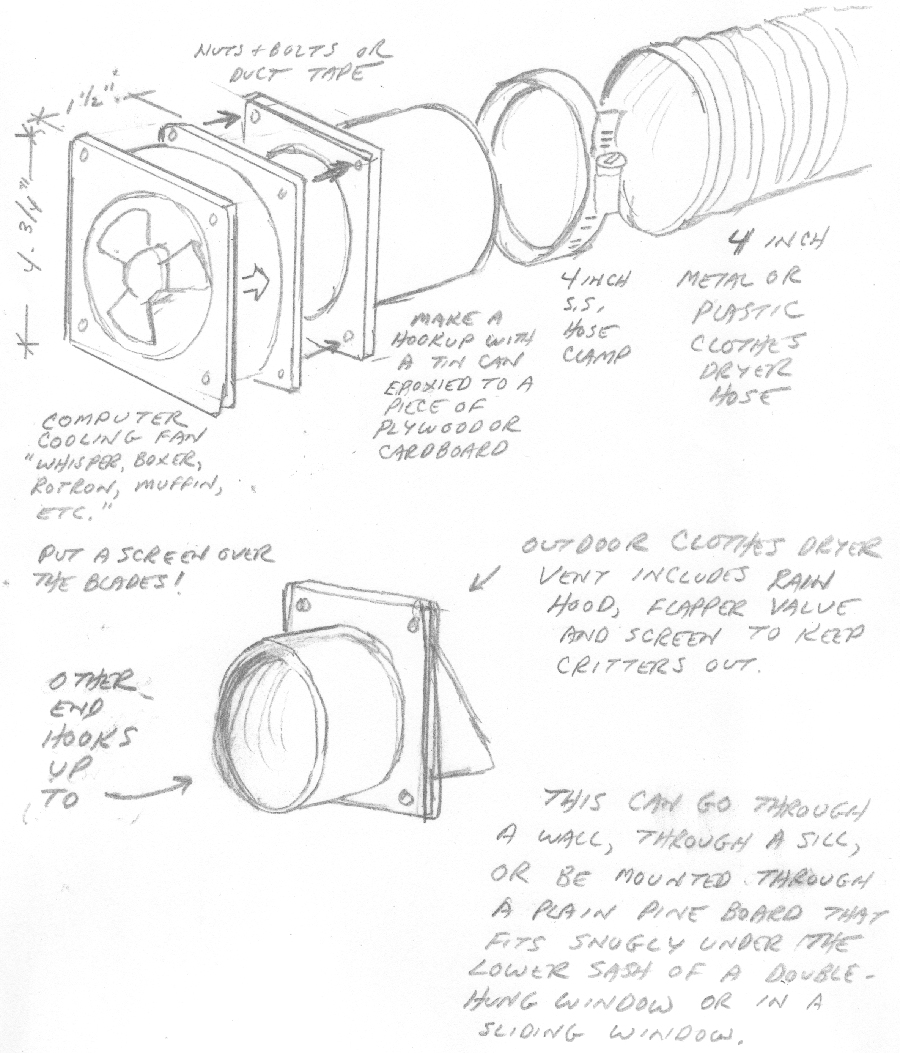 NUTS + BOLTS OR
DUCT TAPE
1 1/2"
4-3/4"
4 INCH
METAL OR
PLASTIC
CLOTHES
DRYER
HOSE
4 INCH
S.S.
HOSE
CLAMP
MAKE A
HOOKUP WITH
A TIN CAN
EPOXIED TO A
PIECE OF
PLYWOOD OR
CARDBOARD
COMPUTER
COOLING FAN
"WHISPER, BOXER,
ROTRON, MUFFIN,
ETC."
PUT A SCREEN OVER
THE BLADES!
OUTDOOR CLOTHES DRYER
VENT INCLUDES RAIN
HOOD, FLAPPER VALUE
AND SCREEN TO KEEP
CRITTERS OUT.
OTHER
END
HOOKS
UP
TO
THIS CAN GO THROUGH
A WALL, THROUGH A SILL,
OR BE MOUNTED THROUGH
A PLAIN PINE BOARD THAT
FITS SNUGLY UNDER THE
LOWER SASH OF A DOUBLE-
HUNG WINDOW OR IN A
SLIDING WINDOW.